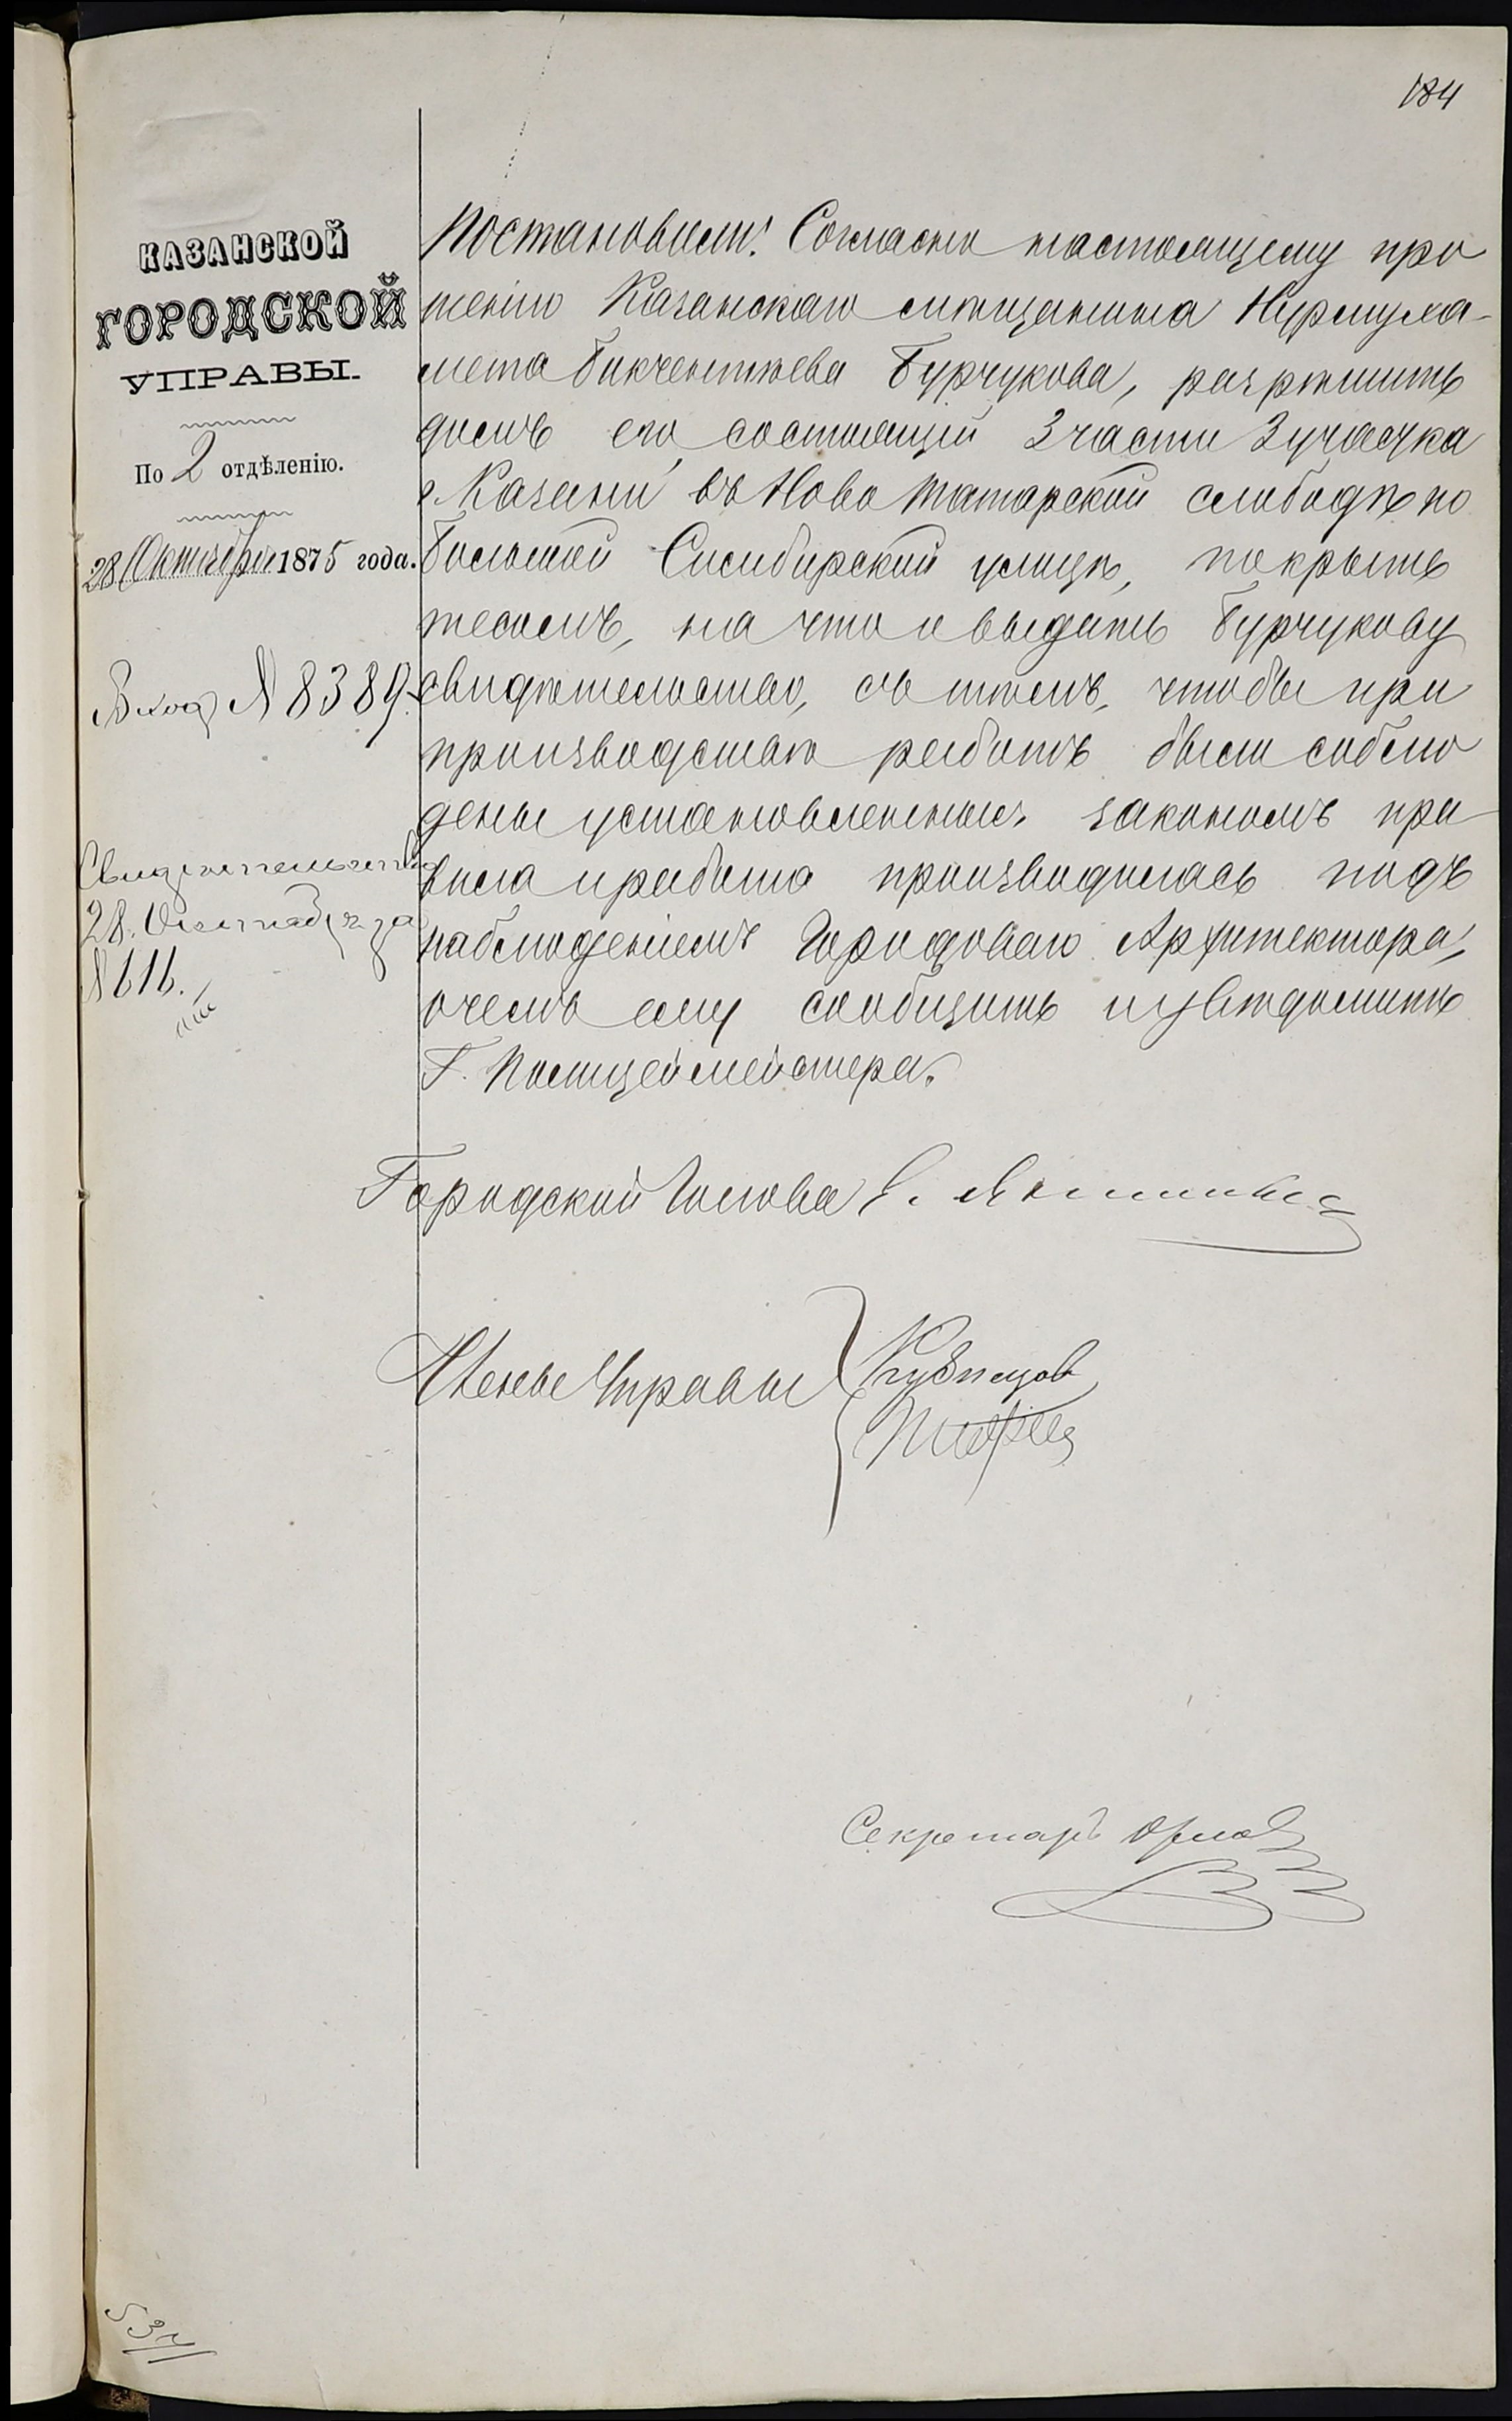 184
КАЗАНСКОЙ
ГОРОДСКОЙ
УПРАВЫ.
По 2 отдѣленію.
28 Октября 1875 года.
Вход № 8389.
Свидѣтельство
28. Октяб. за
№ 616.
Постановили: Согласно настоящему про
шенію Казанскаго мѣщанина Нурмуха-
мета Бикчентѣева Бурчукова, разрѣшить
домъ его, состоящій 3 части 3 участка
г. Казани въ Ново Татарской слободѣ по
большой Симбирской улицѣ, покрыть
тесомъ, на что и выдать Бурчукову
свидѣтельство, съ тѣмъ, чтобы при
производствѣ работъ были соблю
дены установленныя закономъ пра-
вила и работа производилась подъ
наблюденіемъ Городоваго Архитектора,
о чемъ ему сообщить и увѣдомить
Г. Полицеймейстера.
Городской Голова
Члены Управы
Кузнецов
Секретарь Орлов